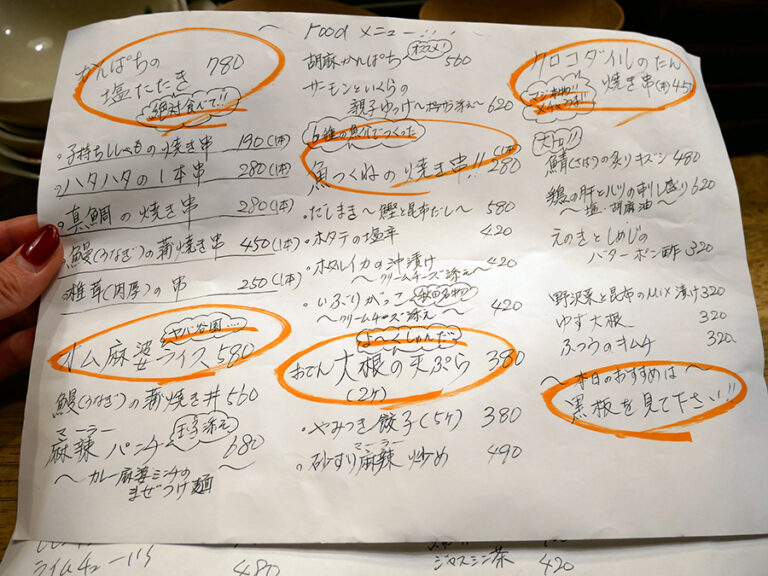 Food メニュー!!
かんぱちの
塩たたき 780
絶対食べて!!
・子持ちししゃもの焼き串 190(1本)
・ハタハタの1本串 280(1本)
・真鯛の焼き串 280(1本)
・鰻(うなぎ)の蒲焼き串 450(1本)
・椎茸(肉厚)の串 250(1本)
ヤバ谷園…
オム麻婆ライス 580
鰻(うなぎ)の蒲焼き丼 560
マーラー
麻辣パンチ 680
玉子添え
〜カレー麻婆ミンチの
まぜつけ麺〜
胡麻かんぱち 560
オススメ!
サーモンといくらの
親子ゆっけ 620
6種の魚介でつくった
魚つくねの焼き串!! (1本) 280
・だしまき〜鰹と昆布だし〜 580
・ホタテの塩辛 420
・ホタルイカの沖漬け 420
〜クリームチーズ添え〜
・いぶりがっこ 420
秋田名物
〜クリームチーズ添え〜
よ〜くしゅんだ
おでん大根の天ぷら 380
(2ケ)
・やみつき餃子(5ヶ) 380
マーラー
・砂ずり麻辣炒め 490
クロコダイルのたん
焼き串(1本) 450
鯖(さば)の炙りキズシ 480
鶏の肝とハツの刺し盛り 620
〜塩・胡麻油〜
えのきとしめじの
バターポン酢 320
野沢菜と昆布のMix漬け 320
ゆず大根 320
ふつうのキムチ 320
〜本日のおすすめは〜
黒板を見て下さい!!
480
ジャスミン茶 420